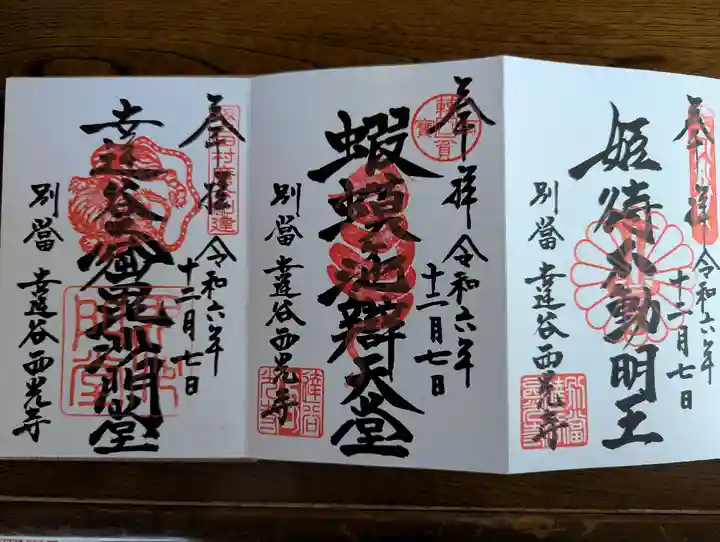 奉拝
令和六年
十二月七日
姫待不動明王
別當 達谷西光寺
奉拝
令和六年
十二月七日
蝦蟆池辯天堂
別當 達谷西光寺
奉拝
令和六年
十二月七日
達谷窟毘沙門堂
別當 達谷西光寺